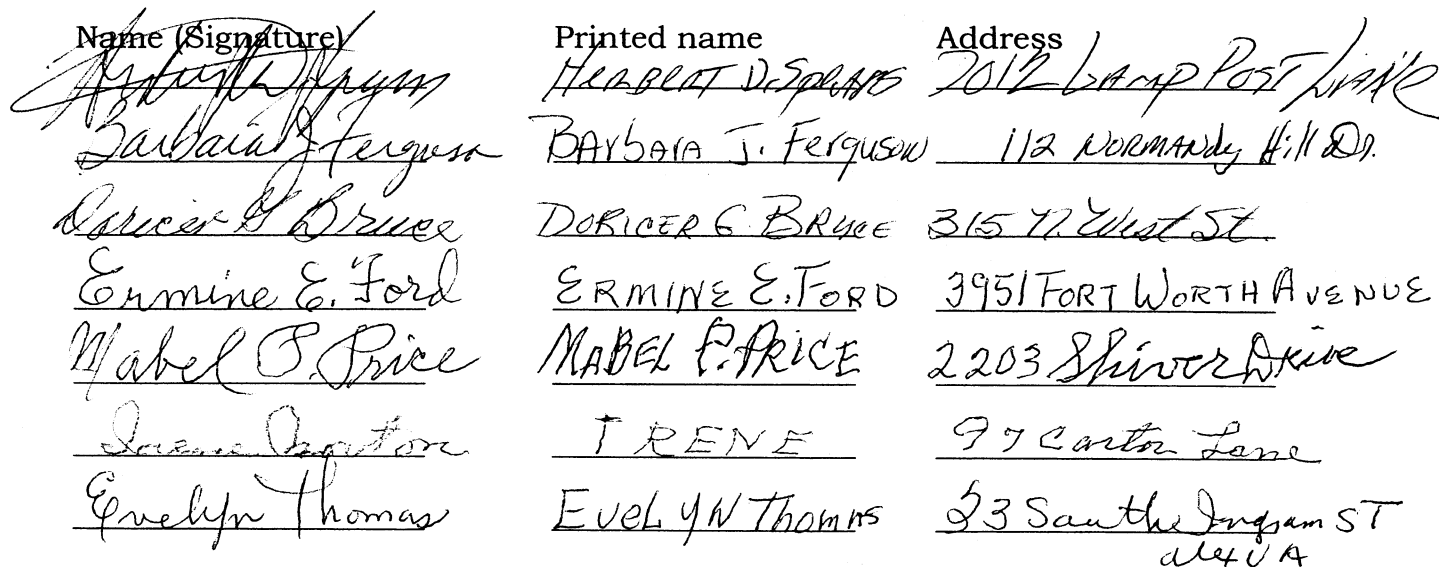 Name (Signature) Printed name Address
HERBERT D. 2012 LAMP POST LANE
Barbara J Ferguson BArbArA J. FergusoN 112 NORMANdy Hill Dr.
Doricer G Bruce DORICER G. BRUCE 315 N. West St.
Ermine E. Ford ERMINE E. FORD 3951 FORT WORTH AVENUE
Mabel P. Price MABEL P. PRICE 2203 Shiver Drive
Irene IRENE 97 Lane
Evelyn Thomas EveLyN ThomAs 23 Southe Ingram ST
alex VA